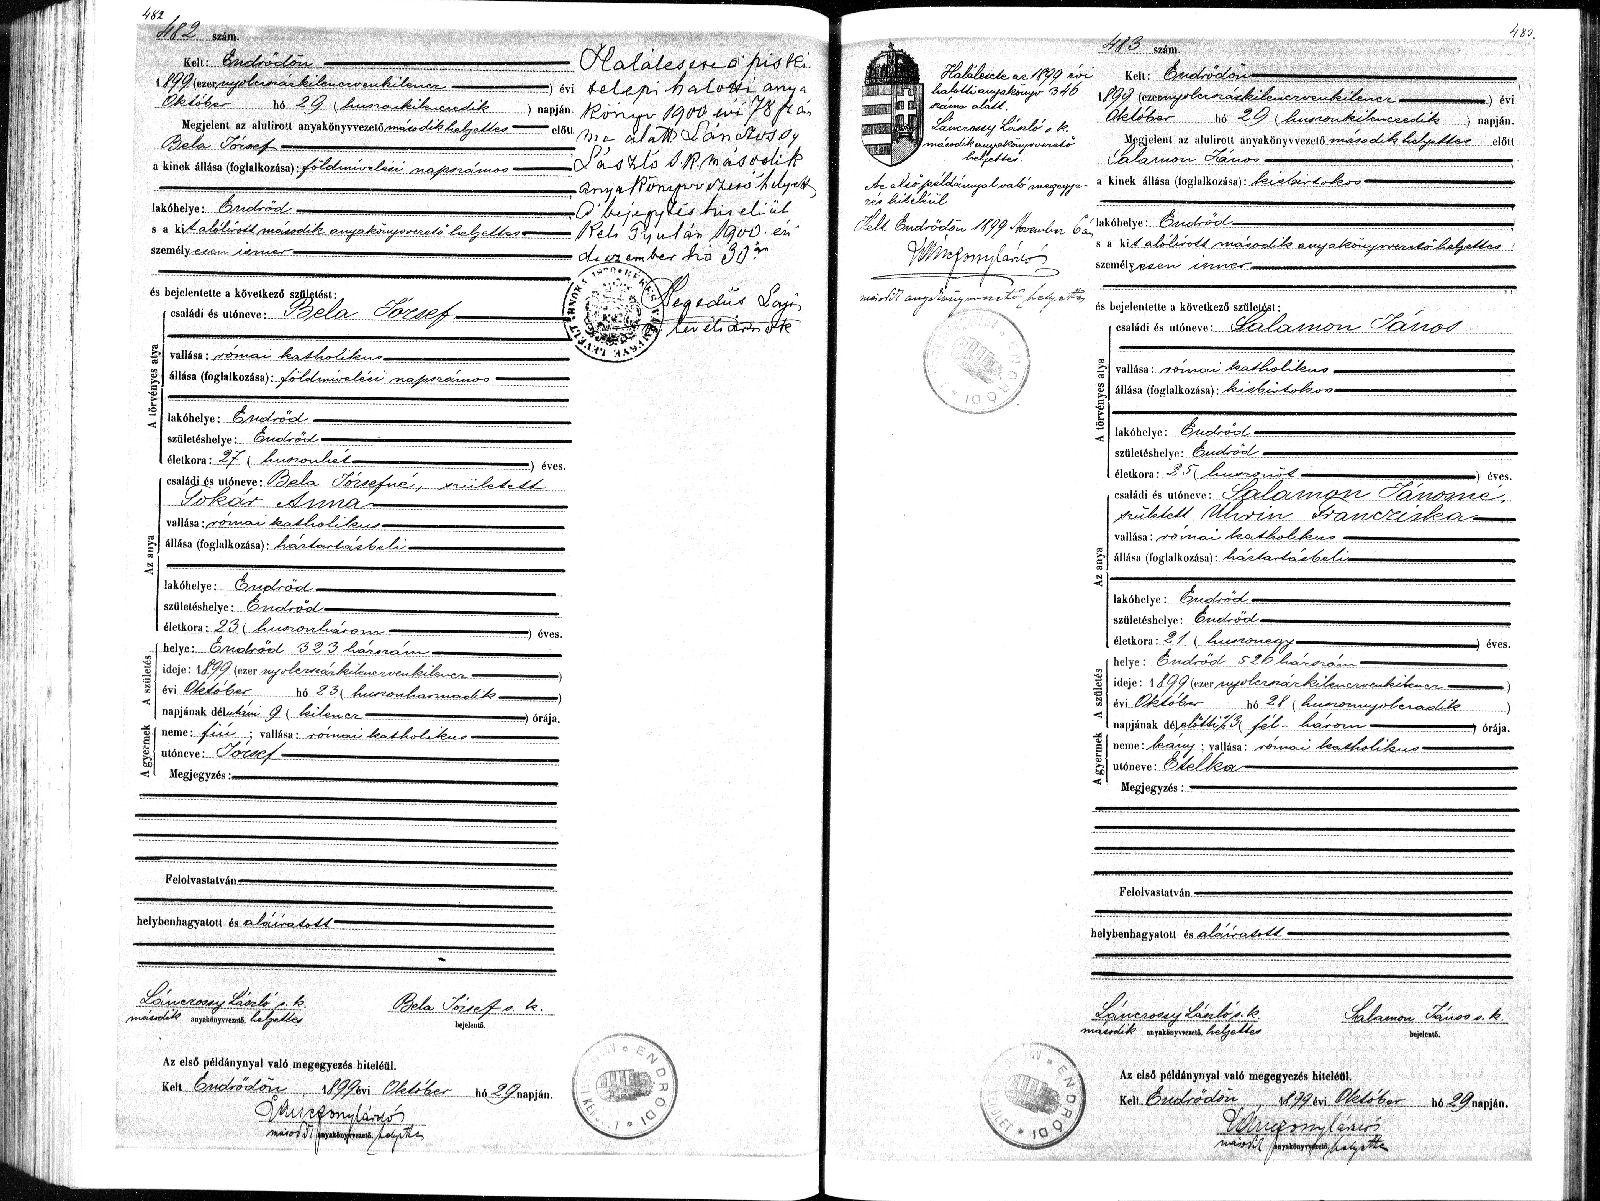 482
482 szám.
Kelt: Endrődön
1899 (ezernyolczszázkilenczvenkilencz) évi
Október hó 29 (huszonkilenczedik) napján.
Megjelent az alulirott anyakönyvvezető második helyettes előtt
Bela József
a kinek állása (foglalkozása): földmivelési napszámos
lakóhelye: Endrőd
s a kit alólirott második anyakönyvvezető helyettes
személyesen ismer
és bejelentette a következő születést:
A törvényes atya
családi és utóneve: Bela József
vallása: római katholikus
állása (foglalkozása): földmivelési napszámos
lakóhelye: Endrőd
születéshelye: Endrőd
életkora: 27 (huszonhét) éves.
Az anya
családi és utóneve: Bela Józsefné, született
Sokár Anna
vallása: római katholikus
állása (foglalkozása): háztartásbeli
lakóhelye: Endrőd
születéshelye: Endrőd
életkora: 23 (huszonhárom) éves.
A születés
helye: Endrőd 323 házszám
ideje: 1899 (ezer nyolczszázkilenczvenkilencz)
évi Október hó 23 (huszonharmadik)
napjának délutáni 9 (kilencz) órája.
A gyermek
neme: fiú; vallása: római katholikus
utóneve: József
Megjegyzés:
Felolvastatván
helybenhagyatott és aláiratott
Lánczossy László s. k. Bela József s. k.
második anyakönyvvezető. helyettes bejelentő.
Az első példánynyal való megegyezés hiteléül.
Kelt Endrődön, 1899 évi Október hó 29 napján.
második anyakönyvvezető. helyettes
ENDRŐDI
Halálesete a piski
telepi halotti anya
könyv 1900 évi 78 szá
ma alatt Lánczossy
László s. k. második
anyakönyvvezető helyett
A bejegyzés hiteléül
Kelt Gyulán 1900. évi
deczember hó 30 án
Hegedüs Lajos
levéltárnok
483.
483 szám.
Halálesete az 1899 évi
halotti anyakönyv 346
száma alatt.
Lánczossy László s. k.
második anyakönyvvezető
helyettes.
Az első példánynyal való megegye-
zés hiteléül.
Kelt Endrődön 1899 November 6 án
második anyakönyvvezető helyettes
ENDRŐDI
Kelt: Endrődön
1899 (ezernyolczszázkilenczvenkilencz) évi
Október hó 29 (huszonkilenczedik) napján.
Megjelent az alulirott anyakönyvvezető második helyettes előtt
Salamon János
a kinek állása (foglalkozása): kisbirtokos
lakóhelye: Endrőd
s a kit alólirott második anyakönyvvezető helyettes
személyesen ismer
és bejelentette a következő születést:
A törvényes atya
családi és utóneve: Salamon János
vallása: római katholikus
állása (foglalkozása): kisbirtokos
lakóhelye: Endrőd
születéshelye: Endrőd
életkora: 25 (huszonöt) éves.
Az anya
családi és utóneve: Salamon Jánosné,
született Uhrin Francziska
vallása: római katholikus
állása (foglalkozása): háztartásbeli
lakóhelye: Endrőd
születéshelye: Endrőd
életkora: 21 (huszonegy) éves.
A születés
helye: Endrőd 526 házszám
ideje: 1899 (ezernyolczszázkilenczvenkilencz)
évi Október hó 28 (huszonnyolczadik)
napjának délelőtti ½3 (fél három) órája.
A gyermek
neme: leány; vallása: római katholikus
utóneve: Etelka
Megjegyzés:
Felolvastatván
helybenhagyatott és aláiratott
Lánczossy László s. k. Salamon János s. k.
második anyakönyvvezető. helyettes bejelentő.
Az első példánynyal való megegyezés hiteléül.
Kelt Endrődön, 1899 évi Október hó 29 napján.
második anyakönyvvezető. helyettes
ENDRŐDI